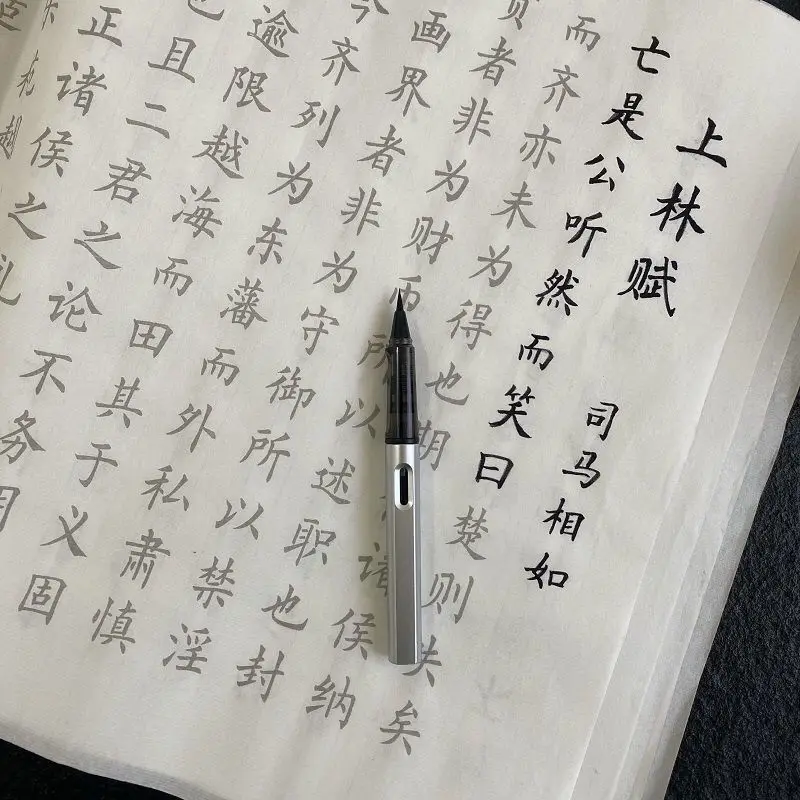 上林赋 司马相如
亡是公听然而笑曰楚则失矣
而齐亦未为得也期诸侯纳
贡者非为财币所以述职也封
画界者非为守御所以禁淫
今齐列为东藩而外私肃慎
逾限越海而田其于义固
也且二君之论不务明
正诸侯之礼